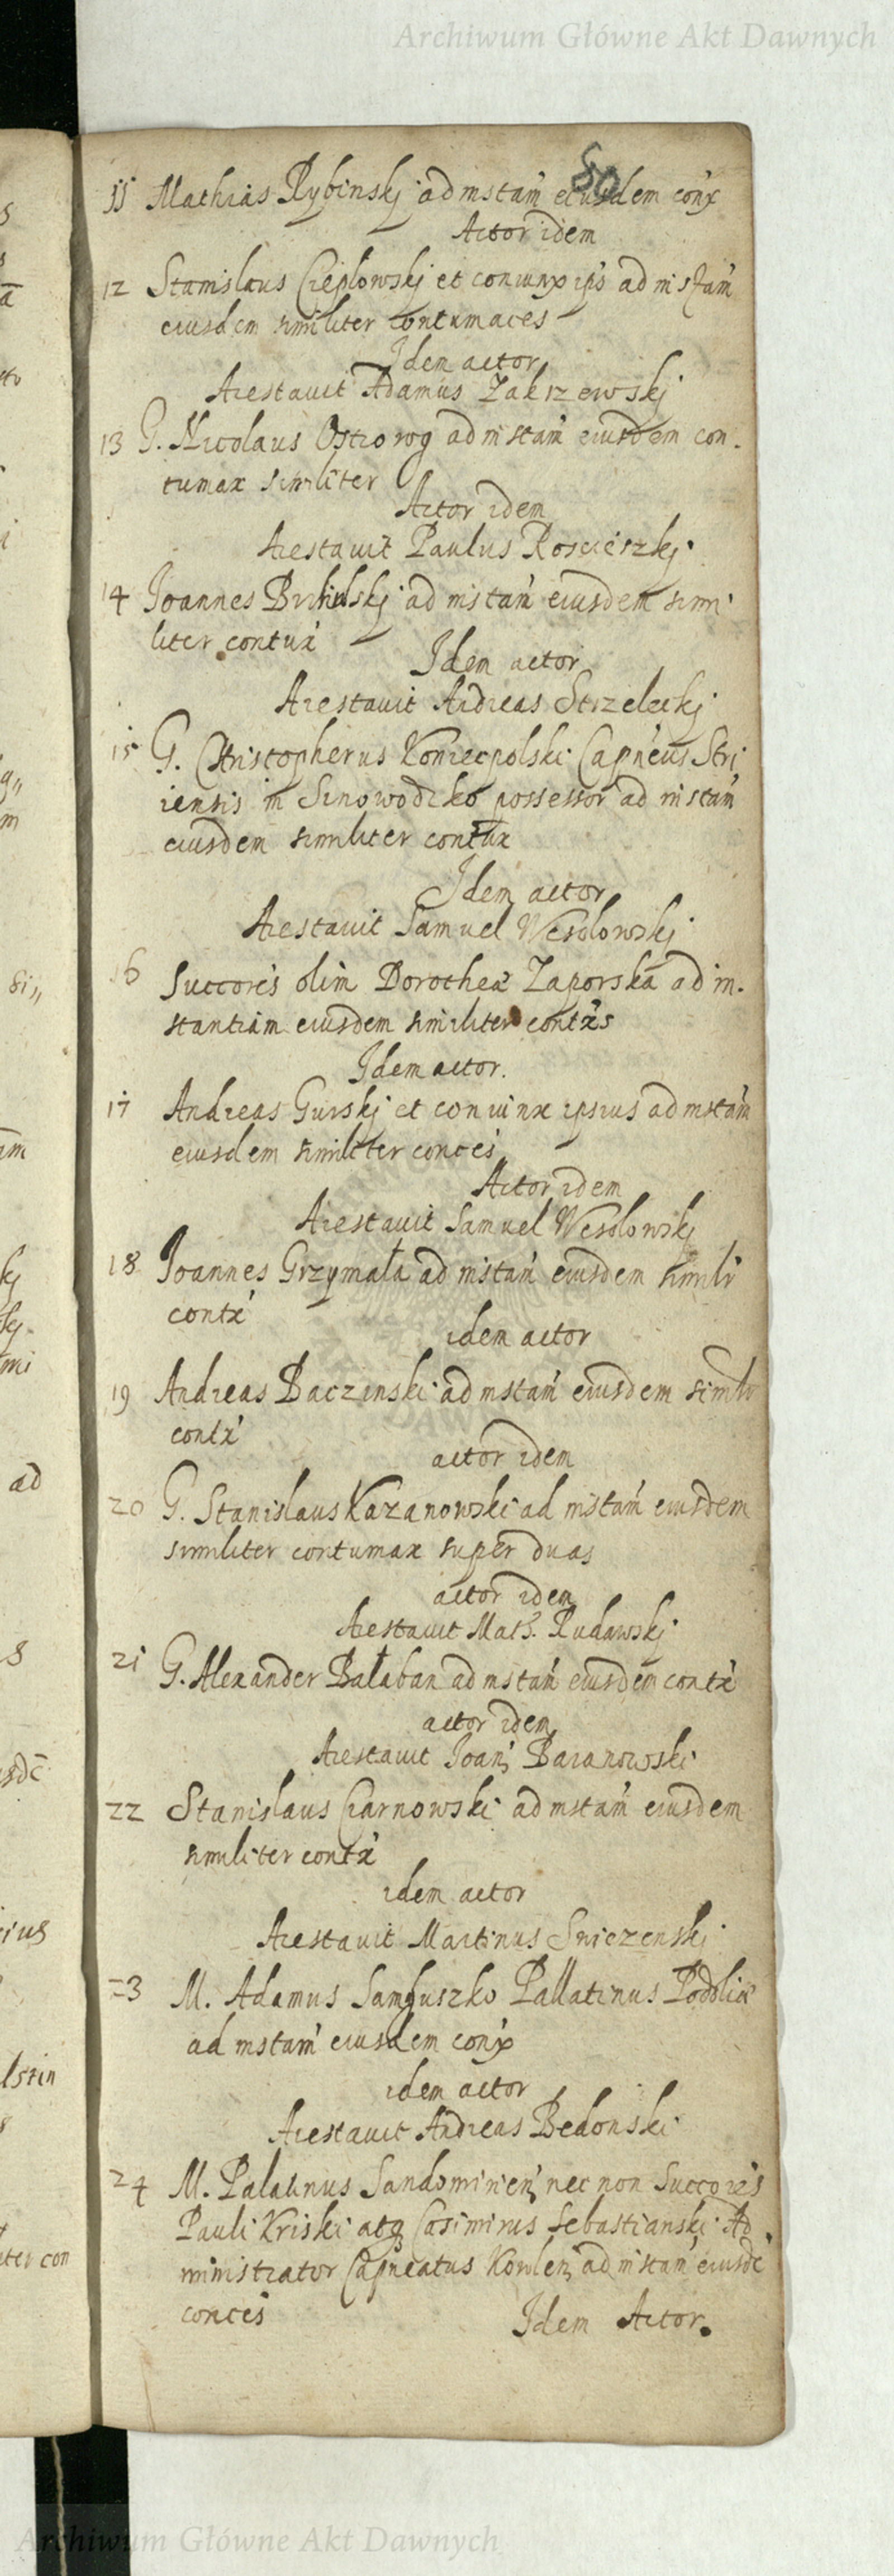 Archiwum Główne Akt Dawnych
50
11 Mathias Rybinskj ad instań eiusdem conx
Actor idem
12 Stanislaus Cieplowskj et coniunx ips ad instań
eiusdem similiter contumaces
Idem actor
Arestavit Adamus Zakrzewskj
13 G. Nicolaus Ostrorog ad instań eiusdem con.
tumax similiter
Actor idem
Arestavit Paulus Rosciészkj
14 Joannes ad instań eiusdem simi
liter contux́
Idem actor
Arestavit Andreas Strzeleckj
15 G. Christopherus Koniecpolski Capneus Stri
iensis in Sinowodzko possessor ad instań
eiusdem similiter contux
Idem actor
Arestavit Samuel Wesolowskj
16 Succorés olim Dorotheæ Zaporska ad in.
stantiam eiusdem similiter contxs
Idem actor.
17 Andreas Gurskj et coniunx ipsius ad instań
eiusdem similiter conces
Actor idem
Arestavit Samuel Wesolowskj
18 Joannes Grzymała ad instań eiusdem simili
contx́
idem actor
19 Andreas Baczinski ad instań eiusdem similr
contx́
actor idem
20 G. Stanislaus Kazanowski ad instań eiusdem
similiter contumax super duas
actor idem
Arestavit Math. Rudawskj
21 G. Alexander Bałaban ad instań eiusdem contx́
actor idem
Arestavit Joań Baranowski
22 Stanislaus Czarnowski ad instań eiusdem
similiter contx́
idem actor
Arestavit Martinus Sniezenski
23 M. Adamus Sanguszko Pallatinus Podoliæ
ad instań eiusdem conx
idem actor
Arestavit Andreas Bedonski
24 M. Palatinus Sandomirień nec non Succorés
Pauli Kriski atq Casimirus Sebastianski Ad
ministrator Capneatus Kowleń ad instań eiusdē
conces
Idem Actor.
Archiwum Główne Akt Dawnych